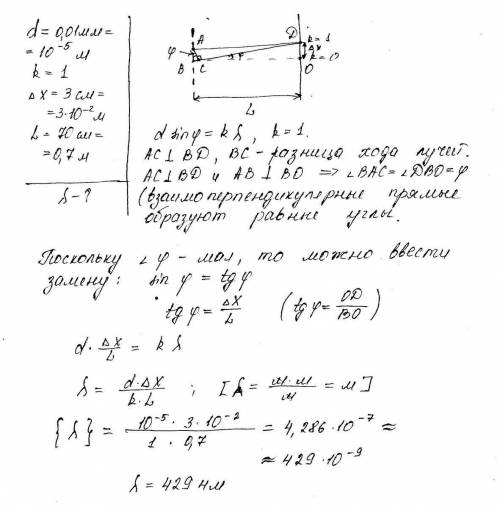 d = 0,01мм =
= 10⁻⁵ м
k = 1
Δx = 3 см =
= 3·10⁻² м
L = 70 см =
= 0,7 м
λ - ?
A
D
k = 1
Δx
φ
B
C
φ
k = 0
O
L
d sinφ = k λ, k = 1.
AC ⊥ BD, BC - разница хода лучей.
AC ⊥ BD и AB ⊥ BO => ∠BAC = ∠DBO = φ
(взаимоперпендикулярные прямые
образуют равные углы.
Поскольку ∠φ - мал, то можно ввести
замену: sin φ = tg φ
tg φ = Δx/L (tg φ = OD/BO)
d · Δx/L = k λ
λ = d·Δx/k·L ; [λ = м·м/м = м]
{λ} = 10⁻⁵ · 3·10⁻²/1 · 0,7 = 4,286·10⁻⁷ ≈
≈ 429·10⁻⁹
λ = 429 нм